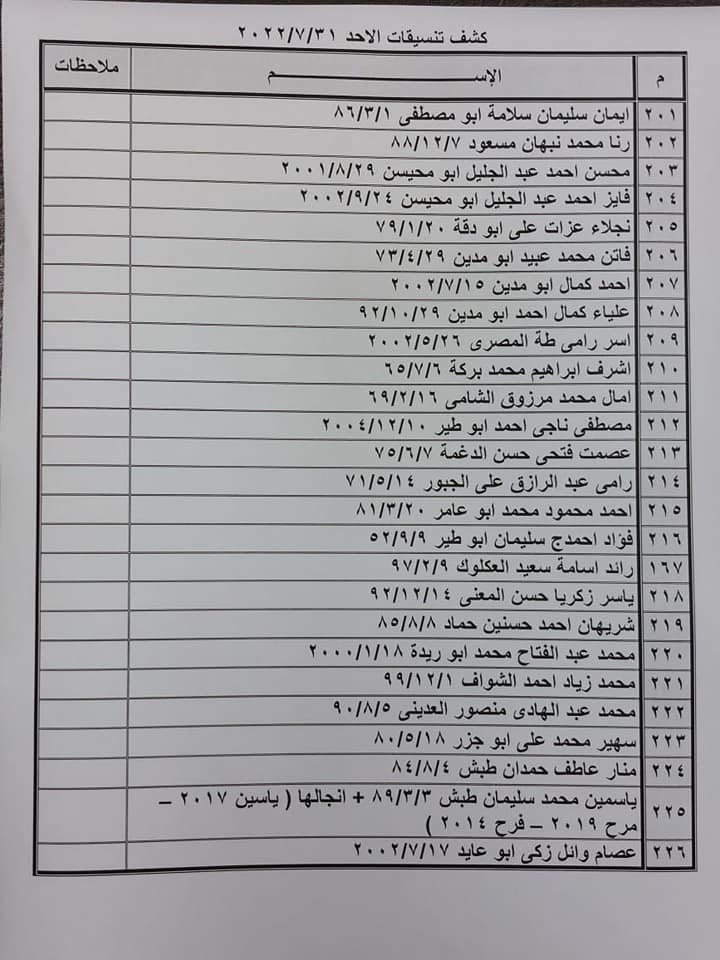 كشف تنسيقات الاحد ٢٠٢٢/٧/٣١
م الإســـــــــم ملاحظات
٢٠١ ايمان سليمان سلامة ابو مصطفى ٨٦/٣/١
٢٠٢ رنا محمد نبهان مسعود ٨٨/١٢/٧
٢٠٣ محسن احمد عبد الجليل ابو محيسن ٢٠٠١/٨/٢٩
٢٠٤ فايز احمد عبد الجليل ابو محيسن ٢٠٠٢/٩/٢٤
٢٠٥ نجلاء عزات على ابو دقة ٧٩/١/٢٠
٢٠٦ فاتن محمد عبيد ابو مدين ٧٣/٤/٢٩
٢٠٧ احمد كمال ابو مدين ٢٠٠٢/٧/١٥
٢٠٨ علياء كمال احمد ابو مدين ٩٢/١٠/٢٩
٢٠٩ اسر رامى طة المصرى ٢٠٠٢/٥/٢٦
٢١٠ اشرف ابراهيم محمد بركة ٦٥/٧/٦
٢١١ امال محمد مرزوق الشامى ٦٩/٢/١٦
٢١٢ مصطفى ناجى احمد ابو طير ٢٠٠٤/١٢/١٠
٢١٣ عصمت فتحى حسن الدغمة ٧٥/٦/٧
٢١٤ رامى عبد الرازق على الجبور ٧١/٥/١٤
٢١٥ احمد محمود محمد ابو عامر ٨١/٣/٢٠
٢١٦ فؤاد احمدج سليمان ابو طير ٥٢/٩/٩
١٦٧ رائد اسامة سعيد العكلوك ٩٧/٢/٩
٢١٨ ياسر زكريا حسن المغنى ٩٢/١٢/١٤
٢١٩ شريهان احمد حسنين حماد ٨٥/٨/٨
٢٢٠ محمد عبد الفتاح محمد ابو ريدة ٢٠٠٠/١/١٨
٢٢١ محمد زياد احمد الشواف ٩٩/١٢/١
٢٢٢ محمد عبد الهادى منصور العدينى ٩٠/٨/٥
٢٢٣ سهير محمد على ابو جزر ٨٠/٥/١٨
٢٢٤ منار عاطف حمدان طبش ٨٤/٨/٤
٢٢٥ ياسمين محمد سليمان طبش ٨٩/٣/٣ + انجالها ( ياسين ٢٠١٧ –
مرح ٢٠١٩ – فرح ٢٠١٤ )
٢٢٦ عصام وائل زكى ابو عايد ٢٠٠٢/٧/١٧